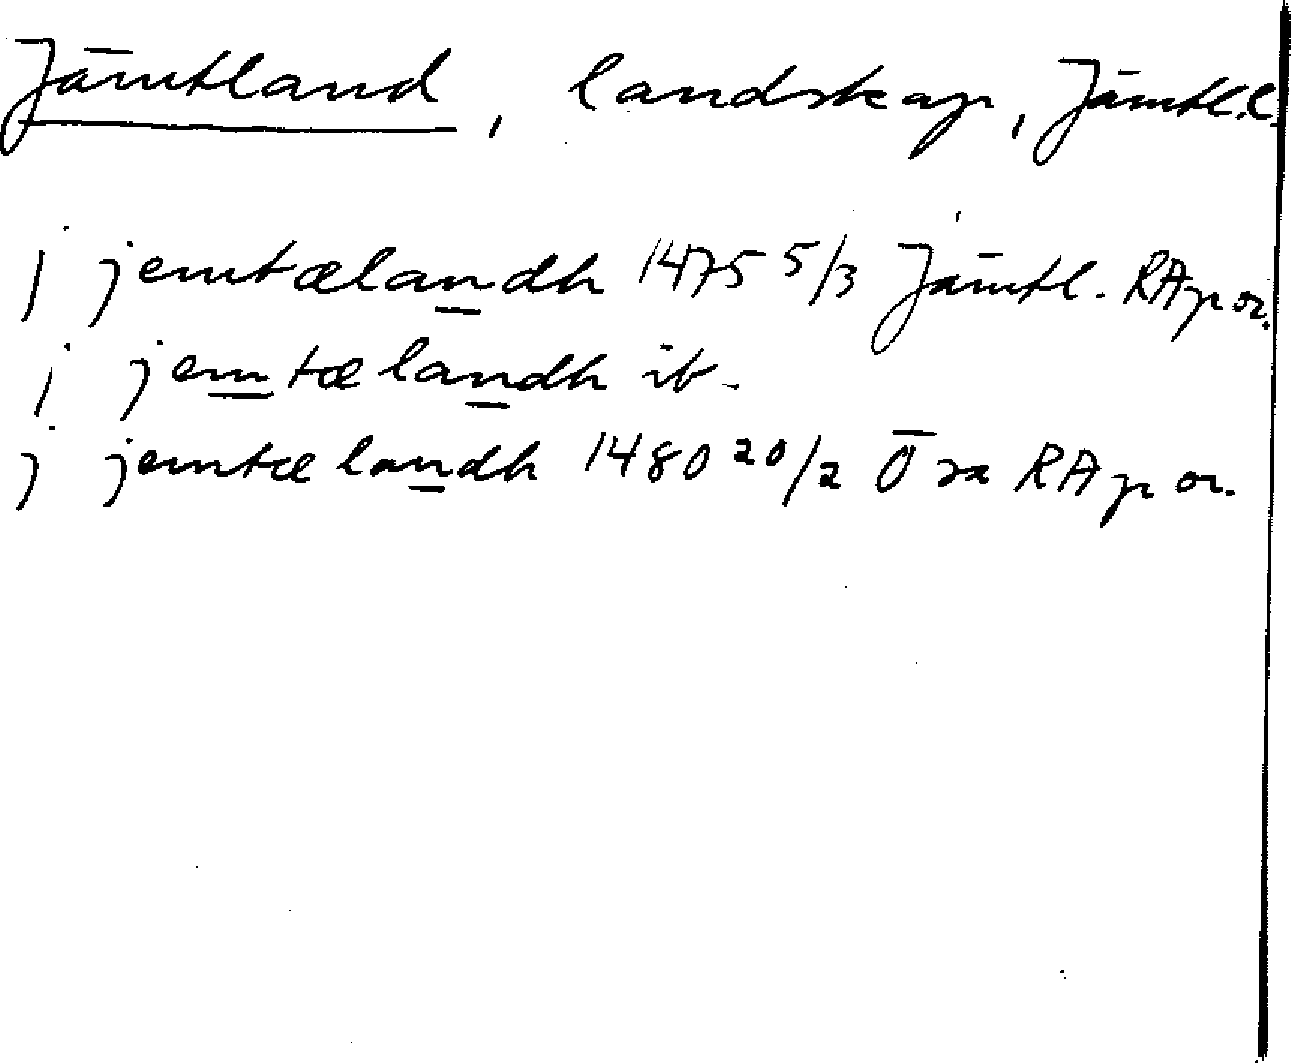 Jämtland, landskap, Jämtl.l.
j jemtælandh 1475 5/3 Jämtl. RAp or.
j jemtælandh ib.
j jemtælandh 1480 20/2 RAp or.